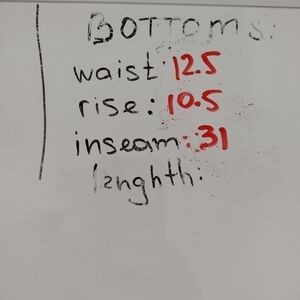 BOTTOMS:
waist: 12.5
rise: 10.5
inseam: 31
lenghth: